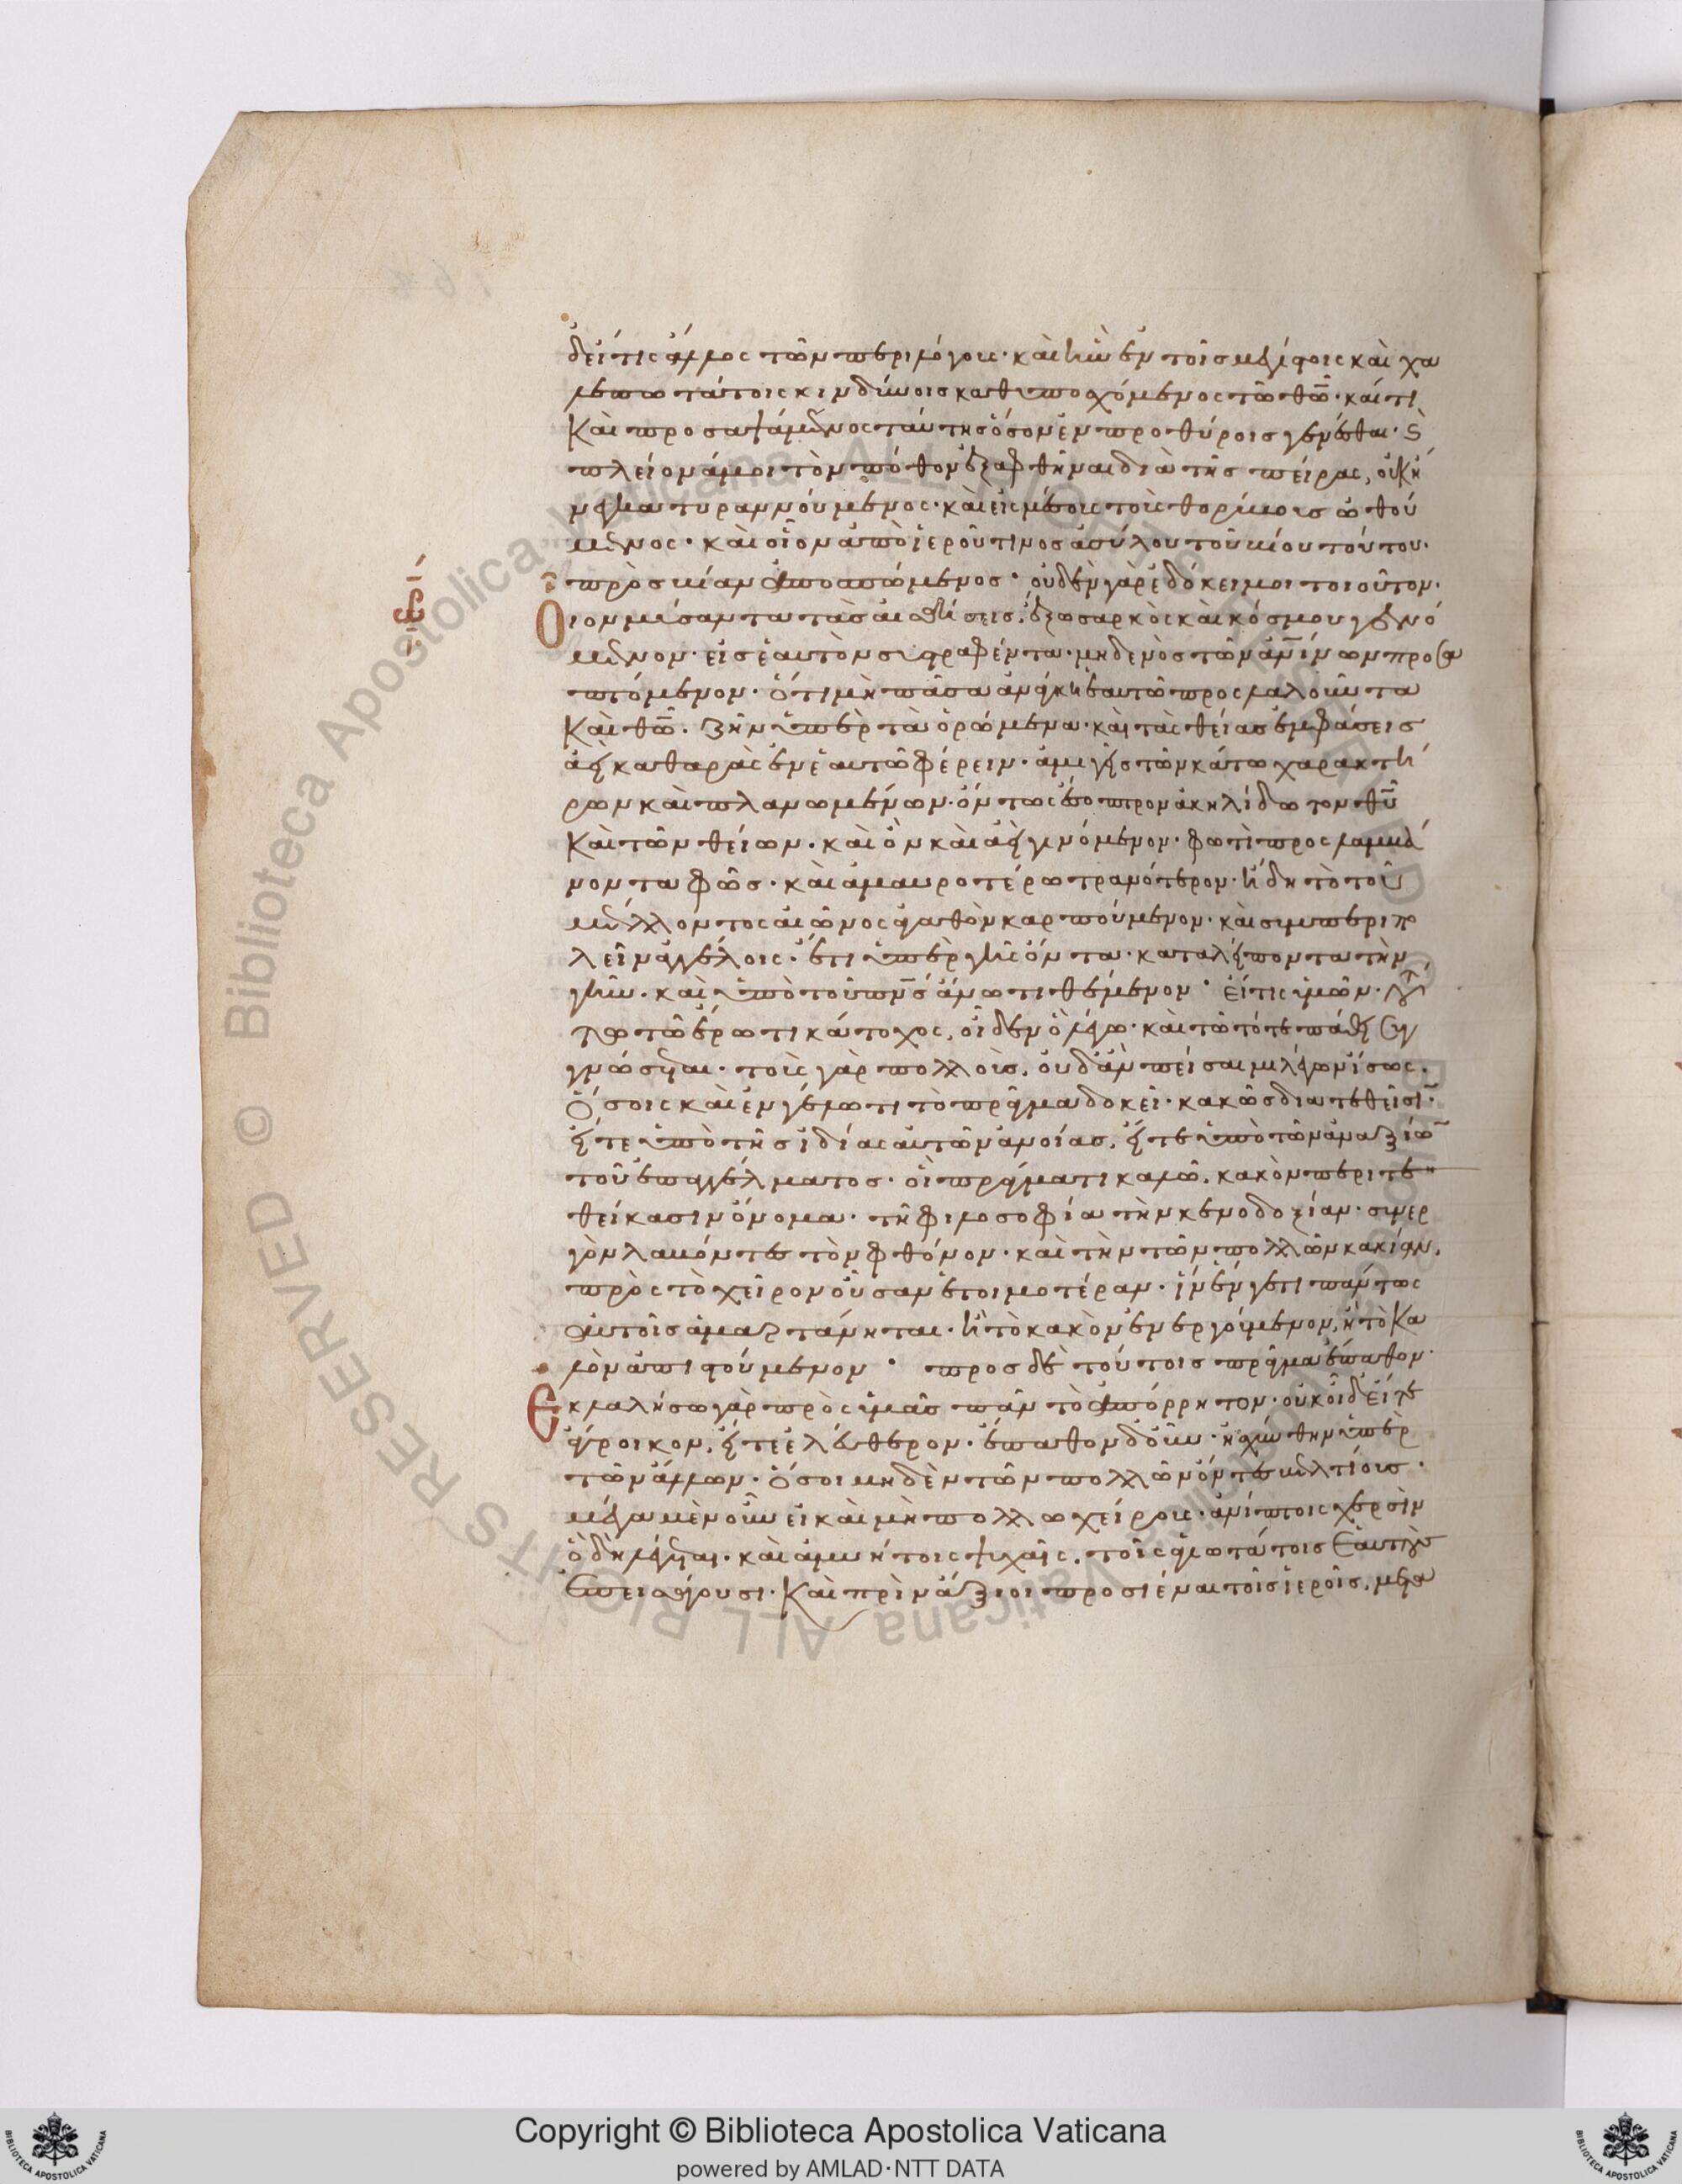 δείτις ἄλλος τῶν περὶ λόγους· καὶ ἣν ἐν τοῖς μεγίστοις καὶ χα
λεπωτάτοις κινδύνοις καθυπεσχόμενος τῷ θῶ· καί τι
καὶ προσαψάμενος ταύτης ὅσον ἐν προθύροις γενέσθαι· καὶ
πλείονά μοι τὸν πόθον ἐξαφθῆναι διὰ τῆς πείρας, οὐκ ἤ
νεγκα τυραννούμενος· καὶ εἰς μέσους τοὺς θορύβους ὠθού
μενος· καὶ οἷον ἀπὸ ἱεροῦ τινος ἀσύλου τοῦ βίου τούτου.
πρὸς βίαν ἀποσπώμενος· οὐδὲν γὰρ ἐδόκει μοι τοιοῦτον.
Οιον μύσαντα τὰς αἰσθήσεις, ἔξω σαρκὸς καὶ κόσμου γενό
μενον· εἰς ἑαυτὸν συστραφέντα· μηδενὸς τῶν ἀνίνων προσα
πτόμενον· ὅτι μὴ πᾶσα ἀνάγκη ἑαυτῷ προσλαλοῦντα
καὶ θῶ. ζῆν ὑπὲρ τὰ ὁρώμενα· καὶ τὰς θείας ἐμφάσεις
ἀεὶ καθαρὰς ἐν ἑαυτῷ φέρειν· ἀμιγεῖς τῶν κάτω χαρακτή
ρων καὶ πλανωμένων· ὄντως ἔσοπτρον ἀκηλίδωτον θῦ
καὶ τῶν θείων· καὶ ὂν καὶ ἀεὶ γινόμενον· φωτὶ προσλαμβά
νοντα φῶς· καὶ ἀμαυροτέρω τρανότερον· ἤδη τὸ τοῦ
μέλλοντος αἰῶνος ἀγαθὸν καρπούμενον· καὶ συμπεριπο
λεῖν ἀγγέλοις· ἔτι ὑπὲρ γῆς ὄντα· καταλείποντα τὴν
γῆν· καὶ ὑπὸ τοῦ πνς ἄνω τιθέμενον· εἴ τις ὑμῶν·
τούτῳ τῷ ἔρωτι κάτοχος, οἶδεν ὃ λέγω· καὶ τῷ τότε πάθει συγ
γνώσεται· τοὺς γὰρ πολλοὺς, οὐδ' ἂν πείσαιμι λέγων ἴσως.
ὅσοις καὶ ἐν γέλωτι τὸ πρᾶγμα δοκεῖ· κακῶς διατεθεῖσι·
εἴτε ὑπὸ τῆς ἰδίας αὐτῶν ἀνοίας, εἴτε ὑπὸ τῶν ἀναξίω
τοῦ ἐπαγγέλματος· οἳ πράγματι καλῷ, κακὸν περιτε
θείκασιν ὄνομα· τῇ φιλοσοφία τὴν κενοδοξίαν· συνερ
γὸν λαβόντες τὸν φθόνον· καὶ τὴν τῶν πολλῶν κακίαν,
πρὸς τὸ χεῖρον οὖσαν ἑτοιμοτέραν· ἵν' ἕν γέ τι πάντως
αὐτοῖς ἁμαρτάνηται· ἢ τὸ κακὸν ἐνεργούμενον, ἢ τὸ κα
λὸν ἀπιστούμενον· πρὸς δὲ τούτοις πρᾶγμα ἔπαθον·
Εκλαλήσω γὰρ πρὸς ὑμᾶς πᾶν τὸ ἀπόρρητον· οὐκ οἶδ' εἴτε
ἄγροικον, εἴτε ἐλεύθερον· ἔπαθον δ' οὖν· ᾐσχύνθην ὑπὲρ
τῶν ἄλλων· ὅσοι μηδὲν τῶν πολλῶν ὄντες βελτίους·
μέγα μὲν οὖν εἰ καὶ μὴ πολλῷ χείρους· ἀνίπτοις χερσὶν
ὃ δὴ λέγεται· καὶ ἀμυήτοις ψυχαῖς, τοῖς ἁγιωτάτοις ἑαυτοὺς
ἐπεισάγουσι· καὶ πρὶν ἄξιοι προσιέναι τοῖς ἱεροῖς, μετα